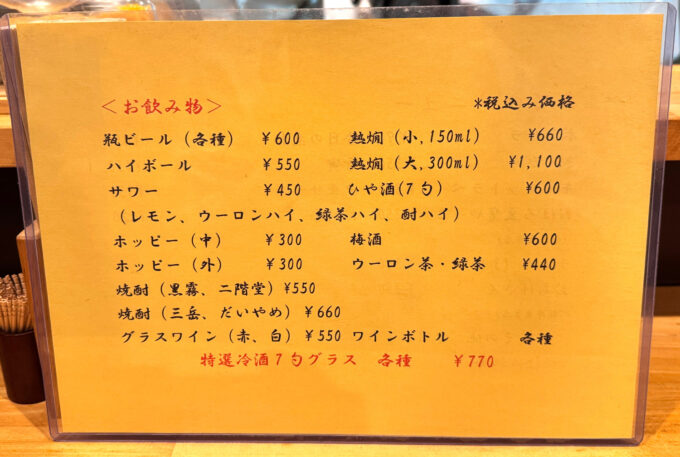 ＜お飲み物＞ *税込み価格
瓶ビール（各種） ¥600 熱燗（小,150ml） ¥660
ハイボール ¥550 熱燗（大,300ml） ¥1,100
サワー ¥450 ひや酒(7勺) ¥600
（レモン、ウーロンハイ、緑茶ハイ、酎ハイ）
ホッピー（中） ¥300 梅酒 ¥600
ホッピー（外） ¥300 ウーロン茶・緑茶 ¥440
焼酎（黒霧、二階堂）¥550
焼酎（三岳、だいやめ）¥660
グラスワイン（赤、白）¥550 ワインボトル 各種
特選冷酒7勺グラス 各種 ¥770